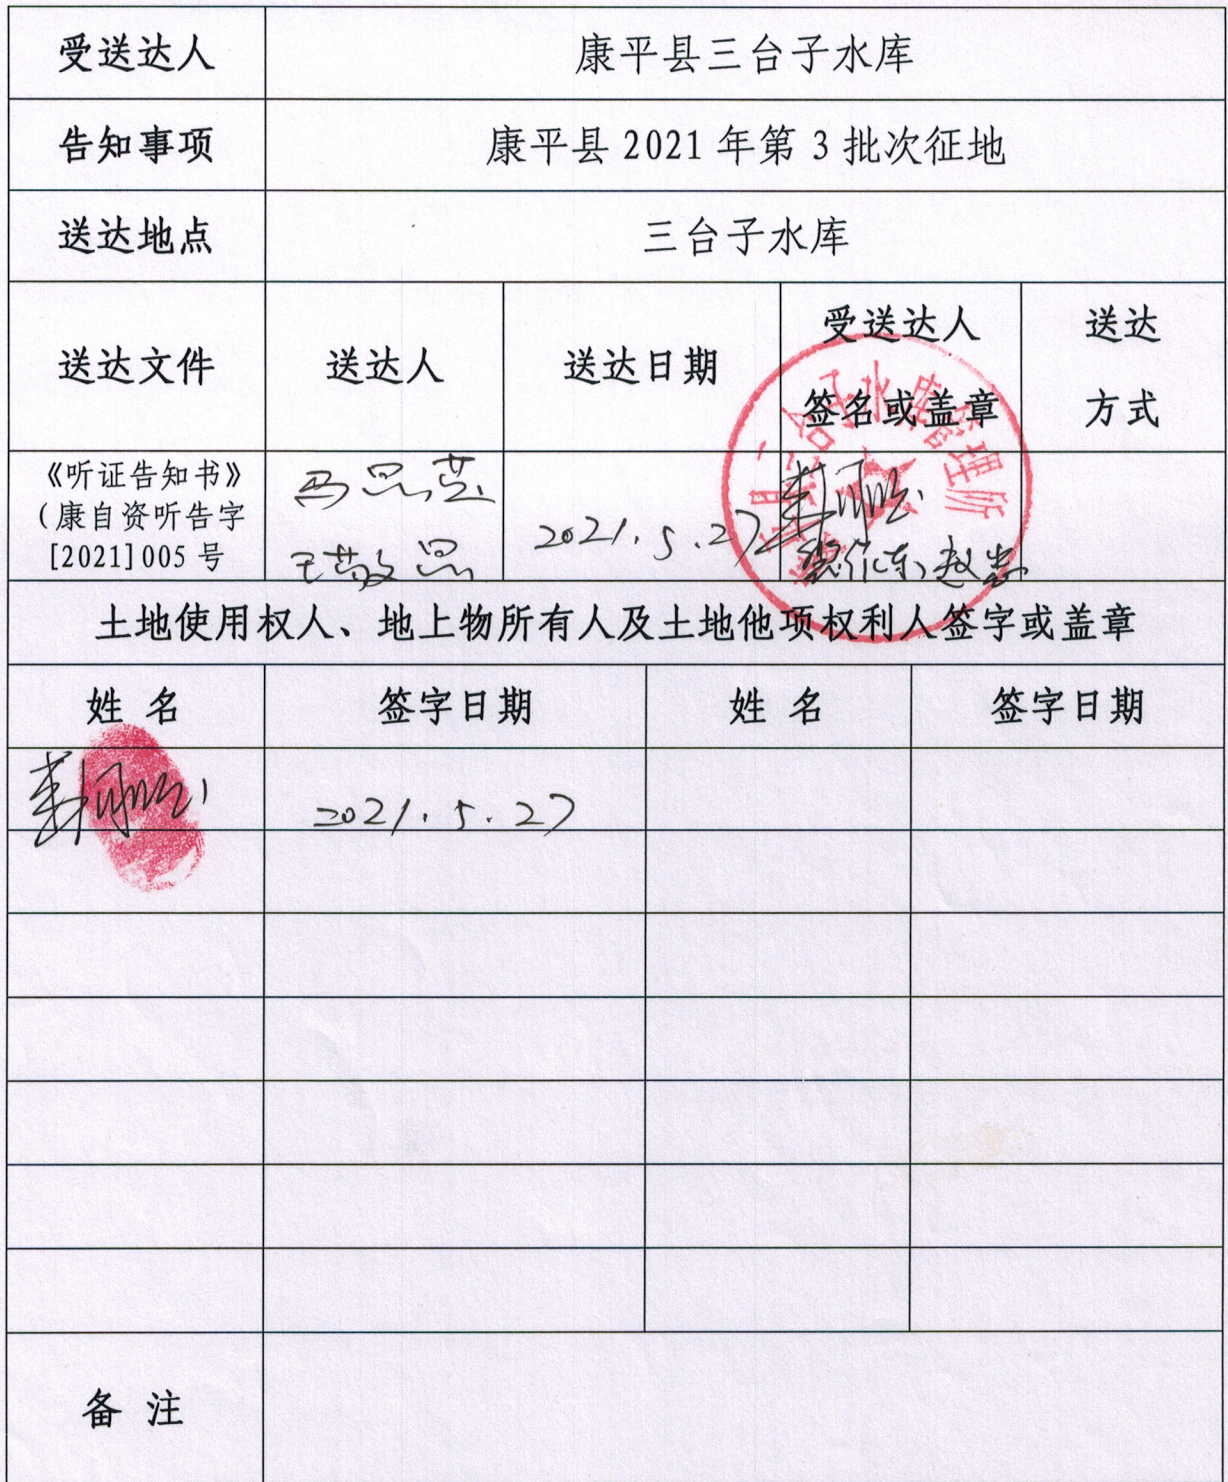 受送达人 康平县三台子水库
告知事项 康平县 2021 年第 3 批次征地
送达地点 三台子水库
送达文件 送达人 送达日期 受送达人 送达
签名或盖章 方式
《听证告知书》
（康自资听告字
[2021]005 号
2021.5.27
三台子水库管理所
土地使用权人、地上物所有人及土地他项权利人签字或盖章
姓 名 签字日期 姓 名 签字日期
2021.5.27
备 注